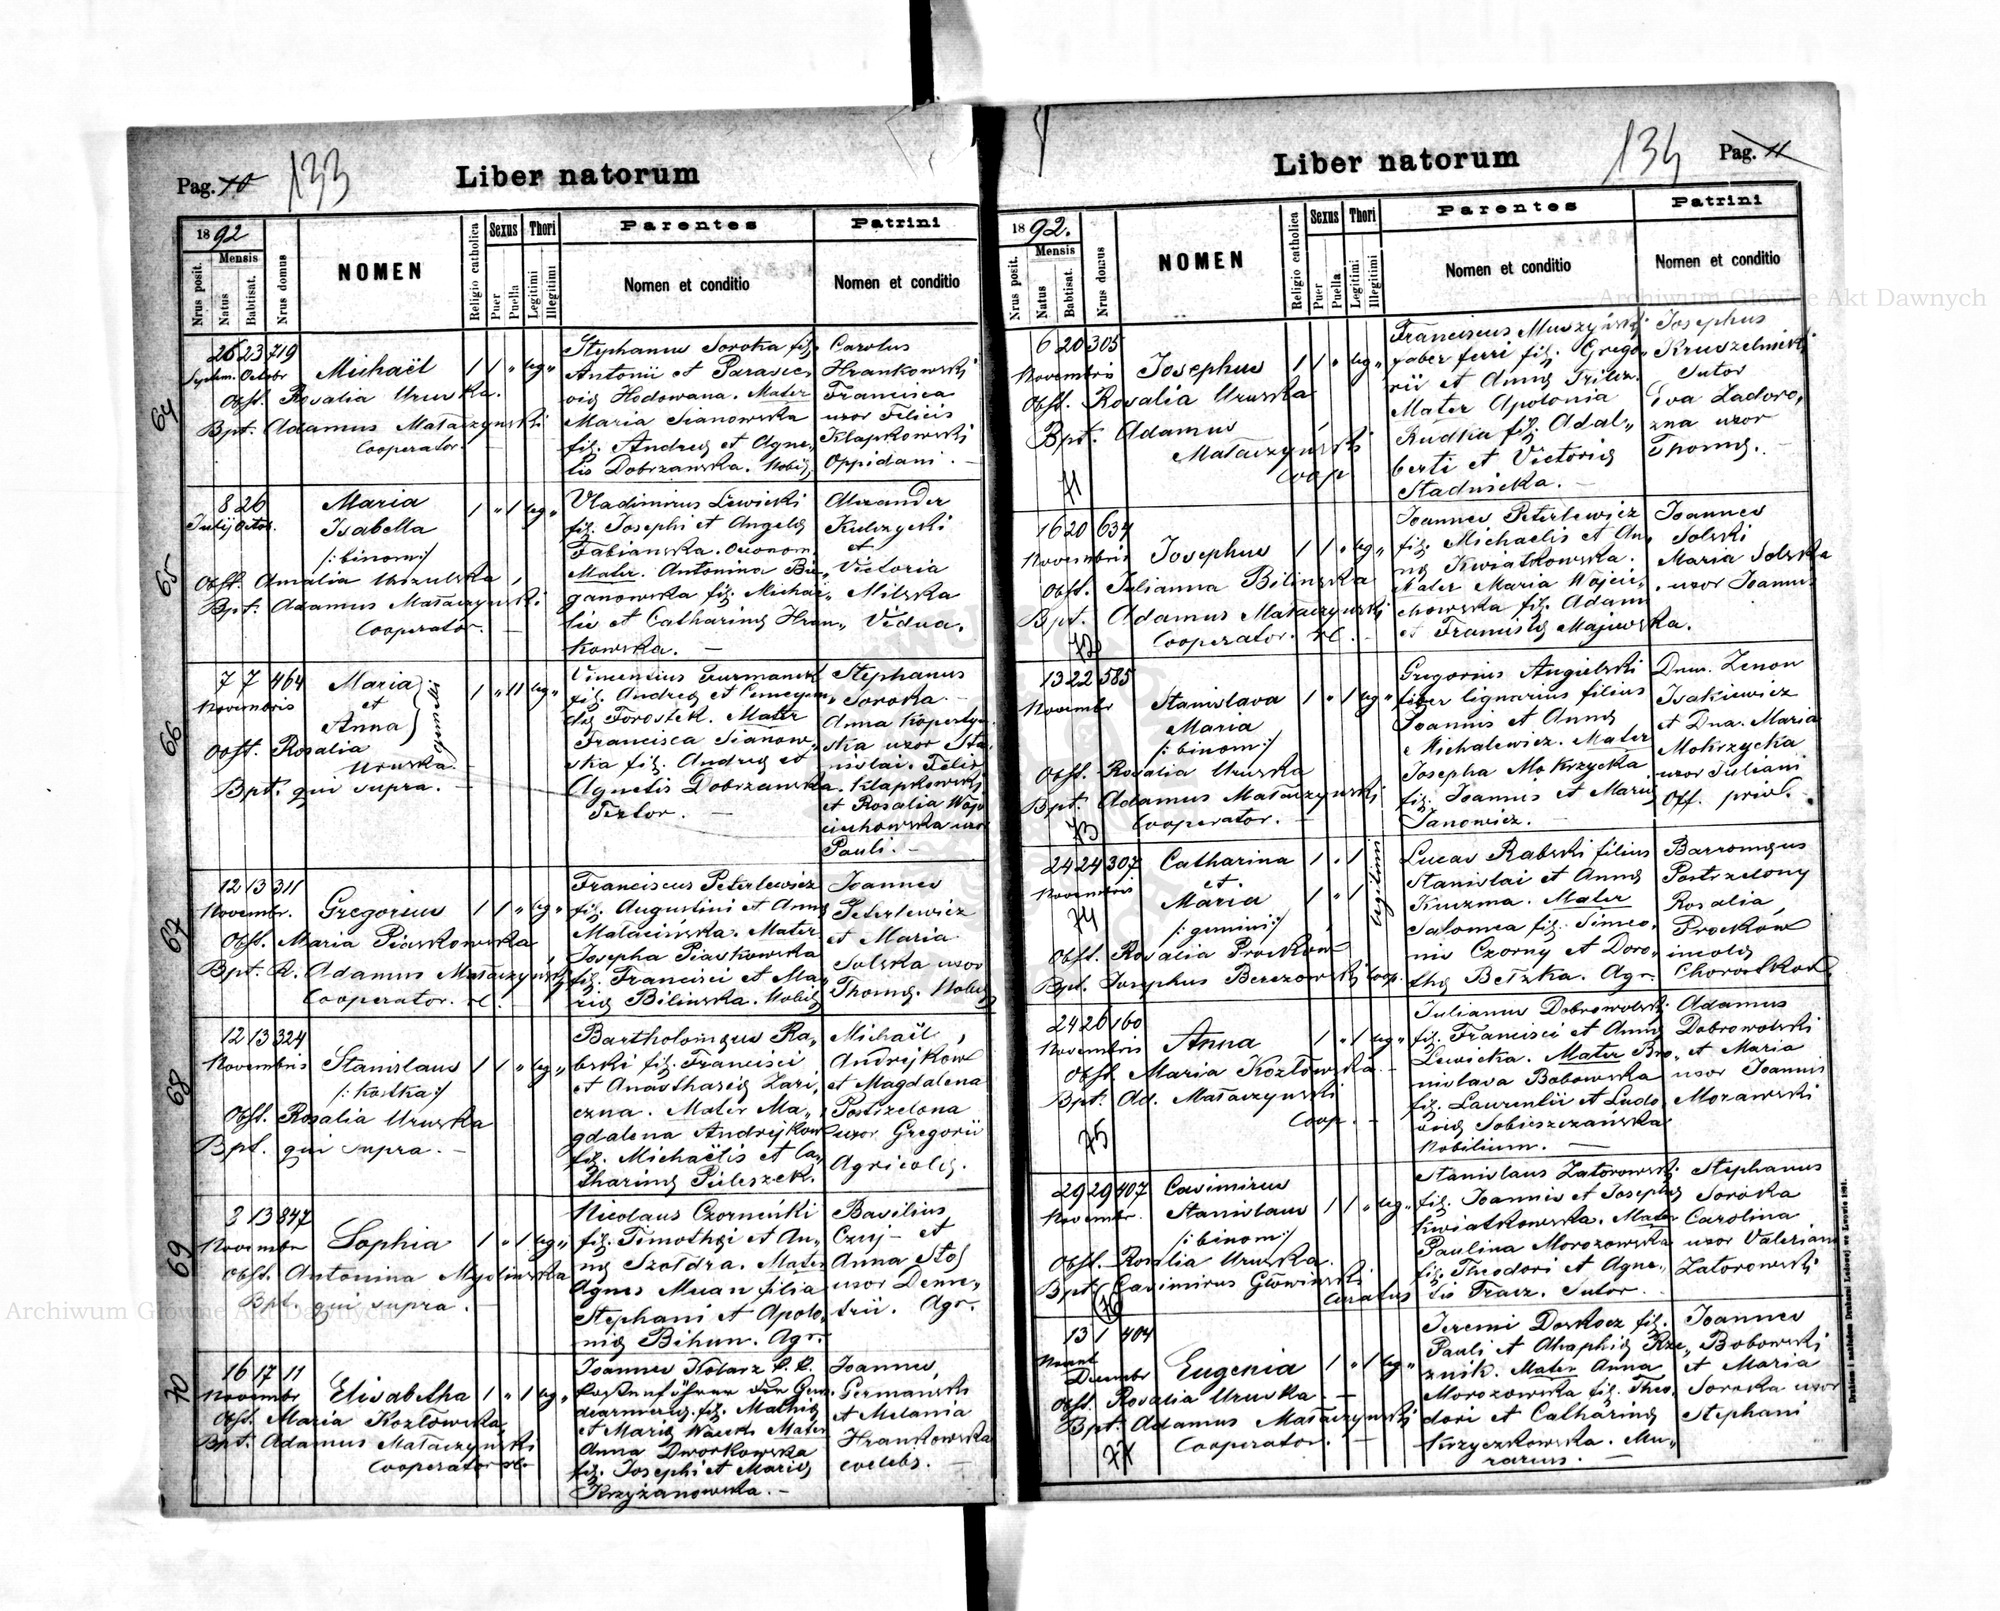 Pag. 10 133 Liber natorum
1892
Mensis
Nrus posit.
Natus
Babtisat.
Nrus domus
NOMEN
Religio catholica
Sexus
Puer
Puella
Thori
Legitimi
Illegitimi
Parentes
Nomen et conditio
Patrini
Nomen et conditio
64
26 23 719
Septem. Octobr
Michaël 1 1 " leg "
Obst. Rosalia Uruska.
Bpt. Adamus Mataczynski
Cooperator.
Stephanus Soroka fil.
Antonii et Parasce
Hodowana. Mater
Maria Sianowska
fil. Andreę et Agne„
tis Dobrzanska. Nobil.
Carolus
Hrankowski
Francisca
uxor Felicis
Klapkowski
Oppidani. —
65
8 26
Julij Octob.
Maria
Isabella
/: binom:/
1 " 1 leg "
Obst. Amalia
Bpt. Adamus Mataczynski
Cooperator. —
Vladimirus Lewicki
fil. Josephi et Angelę
Fabianska. Oeconom.
Mater. Antonina Bie„
ganowska fil. Michae„
lis et Catharinę Hran„
kowska. —
Alexander
Kulczycki
et
Victoria
Milska
Vidua.
66
7 7 464
Novembris
Maria
et
Anna
gemelli
1 " 11 leg "
Obst. Rosalia
Uruska.
Bpt. qui supra. —
Vincentius Furmanek
fil. Andreę et
Forostek. Mater
Francisca Sianow„
ska fil. Andreę et
Agnetis Dobrzanska.
Textor. —
Stephanus
Soroka. —
Anna Koperty„
ska uxor Sta„
nislai. Felix
Klapkowski
et Rosalia Wój„
ciechowska uxor
Pauli. —
67
12 13 311
Novembr.
Gregorius 1 1 " leg "
Obst. Maria Piaskowska
Bpt. R. Adamus Mataczynski
Cooperator. rl.
Franciscus Peterlewicz
fil. Augustini et Annę
Malacinska. Mater
Josepha Piaskowska
fil. Francisci et Ma„
rię Bilinska. Nobilę
Joannes
Peterlewicz
et Maria
Solska uxor
Thomę. Nobilę
68
12 13 324
Novembris
Stanislaus
/: Kostka:/
1 1 " leg "
Obst. Rosalia Uruska
Bpt. qui supra. —
Bartholomęus Ra„
bski fil. Francisci
et Anasthasię Zari„
czna. Mater Ma„
gdalena Andrejkow
fil. Michaëlis et Ca„
tharinę Puleszek.
Michaël
Andrejkow
et Magdalena
Postrzelona
uxor Gregorii
Agricolę.
69
3 13 847
Novembr
Sophia 1 " 1 leg "
Obst. Antonina Myślinska
Bpt. qui supra. —
Nicolaus Czorneński
fil. Timothęi et An„
nę Szołdra. Mater
Agnes Muan filia
Stephani et Apolo„
nię Bihun. Agr.
Basilius
Czuj et
Anna Stoj
uxor Deme„
trii. Agr.
70
16 17 11
Novembr
Elisabetha 1 " 1 leg "
Obst. Maria Kozłowska
Bpt. Adamus Mataczynski
Cooperator rl.
Joannes Kolarz k. k.
Postenführer der Gen„
darmerię fil. Mathię
et Marię Wacek Mater
Anna Dworkowska
fil. Josephi et Marię
Krzyżanowska. —
Joannes
Germanski
et Melania
Hrankowska
coelebs. —
Liber natorum 134 Pag. 11
1892.
Mensis
Nrus posit.
Natus
Babtisat.
Nrus domus
NOMEN
Religio catholica
Sexus
Puer
Puella
Thori
Legitimi
Illegitimi
Parentes
Nomen et conditio
Patrini
Nomen et conditio
6 20 305
Novembris
Josephus 1 1 " leg "
Obst. Rosalia Uruska
Bpt. Adamus
Mataczyński
Coop
71
Franciscus Muszyński
faber ferri fil. Grego„
rii et Annę
Mater Apolonia
Rudka fil. Adal„
berti et Victorię
Stadnicka. —
Josephus
Kruszelnicki
Sutor
Eva Zadoro„
zna uxor
Thomę. —
16 20 634
Novembris
Josephus 1 1 " leg "
Obst. Julianna Bilinska
Bpt. Adamus Mataczynski
Cooperator. rl. —
72
Joannes Peterlewicz
fil. Michaelis et An„
nę Kwiatkowska.
Mater Maria Wójci„
chowska fil. Adami
et Franciscę Majewska.
Joannes
Solski
Maria Solska
uxor Joannis
13 22 585
Novembr
Stanislava
Maria
/: binom:/
1 " 1 leg "
Obst. Rosalia Uruska
Bpt. Adamus Mataczynski
Cooperator. —
73
Gregorius Angielski
faber lignarius filius
Joannis et Annę
Michalewicz. Mater
Josepha Mokrzycka
fil. Joannis et Marię
Janowicz. —
Dnus. Zenon
Isakiewicz
et Dna. Maria
Mokrzycka
uxor Juliani
Off. priv.
24 24 307
Novembris
Catharina 1 " 1
et
Maria 1 " 1
/: gemini:/
legitimi
74
Obst. Rosalia Prockow
Bpt. Josephus Berezowski Coop.
Lucas Rabski filius
Stanislai et Annę
Kuczma. Mater
Salomea fil. Simeo„
nis Czorny et Doro„
thę Bełzka. Agr.
Barromęus
Postrzelony
Rosalia
Prockow
incolę
Chorostkow
24 26 160
Novembris
Anna 1 " 1 leg "
Obst. Maria Kozłowska. —
Bpt. Ad. Mataczynski
Coop. —
75
Julianus Dobrowolski
fil. Francisci et Annę
Lewicka. Mater Bro„
nislava Bobowska
fil. Laurentii et Ludo„
vicę Sobieszczańska
Nobilium. —
Adamus
Dobrowolski
et Maria
uxor Joannis
Morawski
29 29 407
Novembr.
Casimirus
Stanislaus
/: binom:/
1 1 " leg "
Obst. Rosalia Uruska.
Bpt. Casimirus Głowinski
Curatus
76
Stanislaus Zatorowski
fil. Joannis et Josephę
Kwiatkowska. Mater
Paulina Morozowska
fil. Theodori et Agne„
tis Fracz. Sutor.
Stephanus
Soroka
Carolina
uxor Valeriani
Zatorowski
13 1 404
Novemb
Decembr
Eugenia 1 " 1 leg "
Obst. Rosalia Uruska. —
Bpt. Adamus Mataczynski
Cooperator. —
77
Jeremi Doskocz fil.
Pauli et Ahaphię Rze„
znik. Mater Anna
Morozowska fil. Theo„
dori et Catharinę
Krzyczkowska. Mu„
rarius. —
Joannes
Bobowski
et Maria
Soroka uxor
Stephani
Drukiem i nakładem Drukarni Ludowej we Lwowie 1891.
Archiwum Główne Akt Dawnych
Archiwum Główne Akt Dawnych